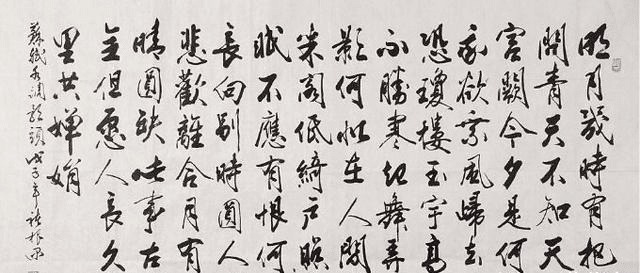 明月幾時有把
問青天不知天
宮闕今夕是何
我欲乘風歸去
恐瓊樓玉宇高
不勝寒起舞弄
影何似在人間
朱閣低綺戶照
眠不應有恨何
長向別時圓人
悲歡離合月有
晴圓缺此事古
全但願人長久
里共嬋娟
蘇軾水調歌頭 戊子年